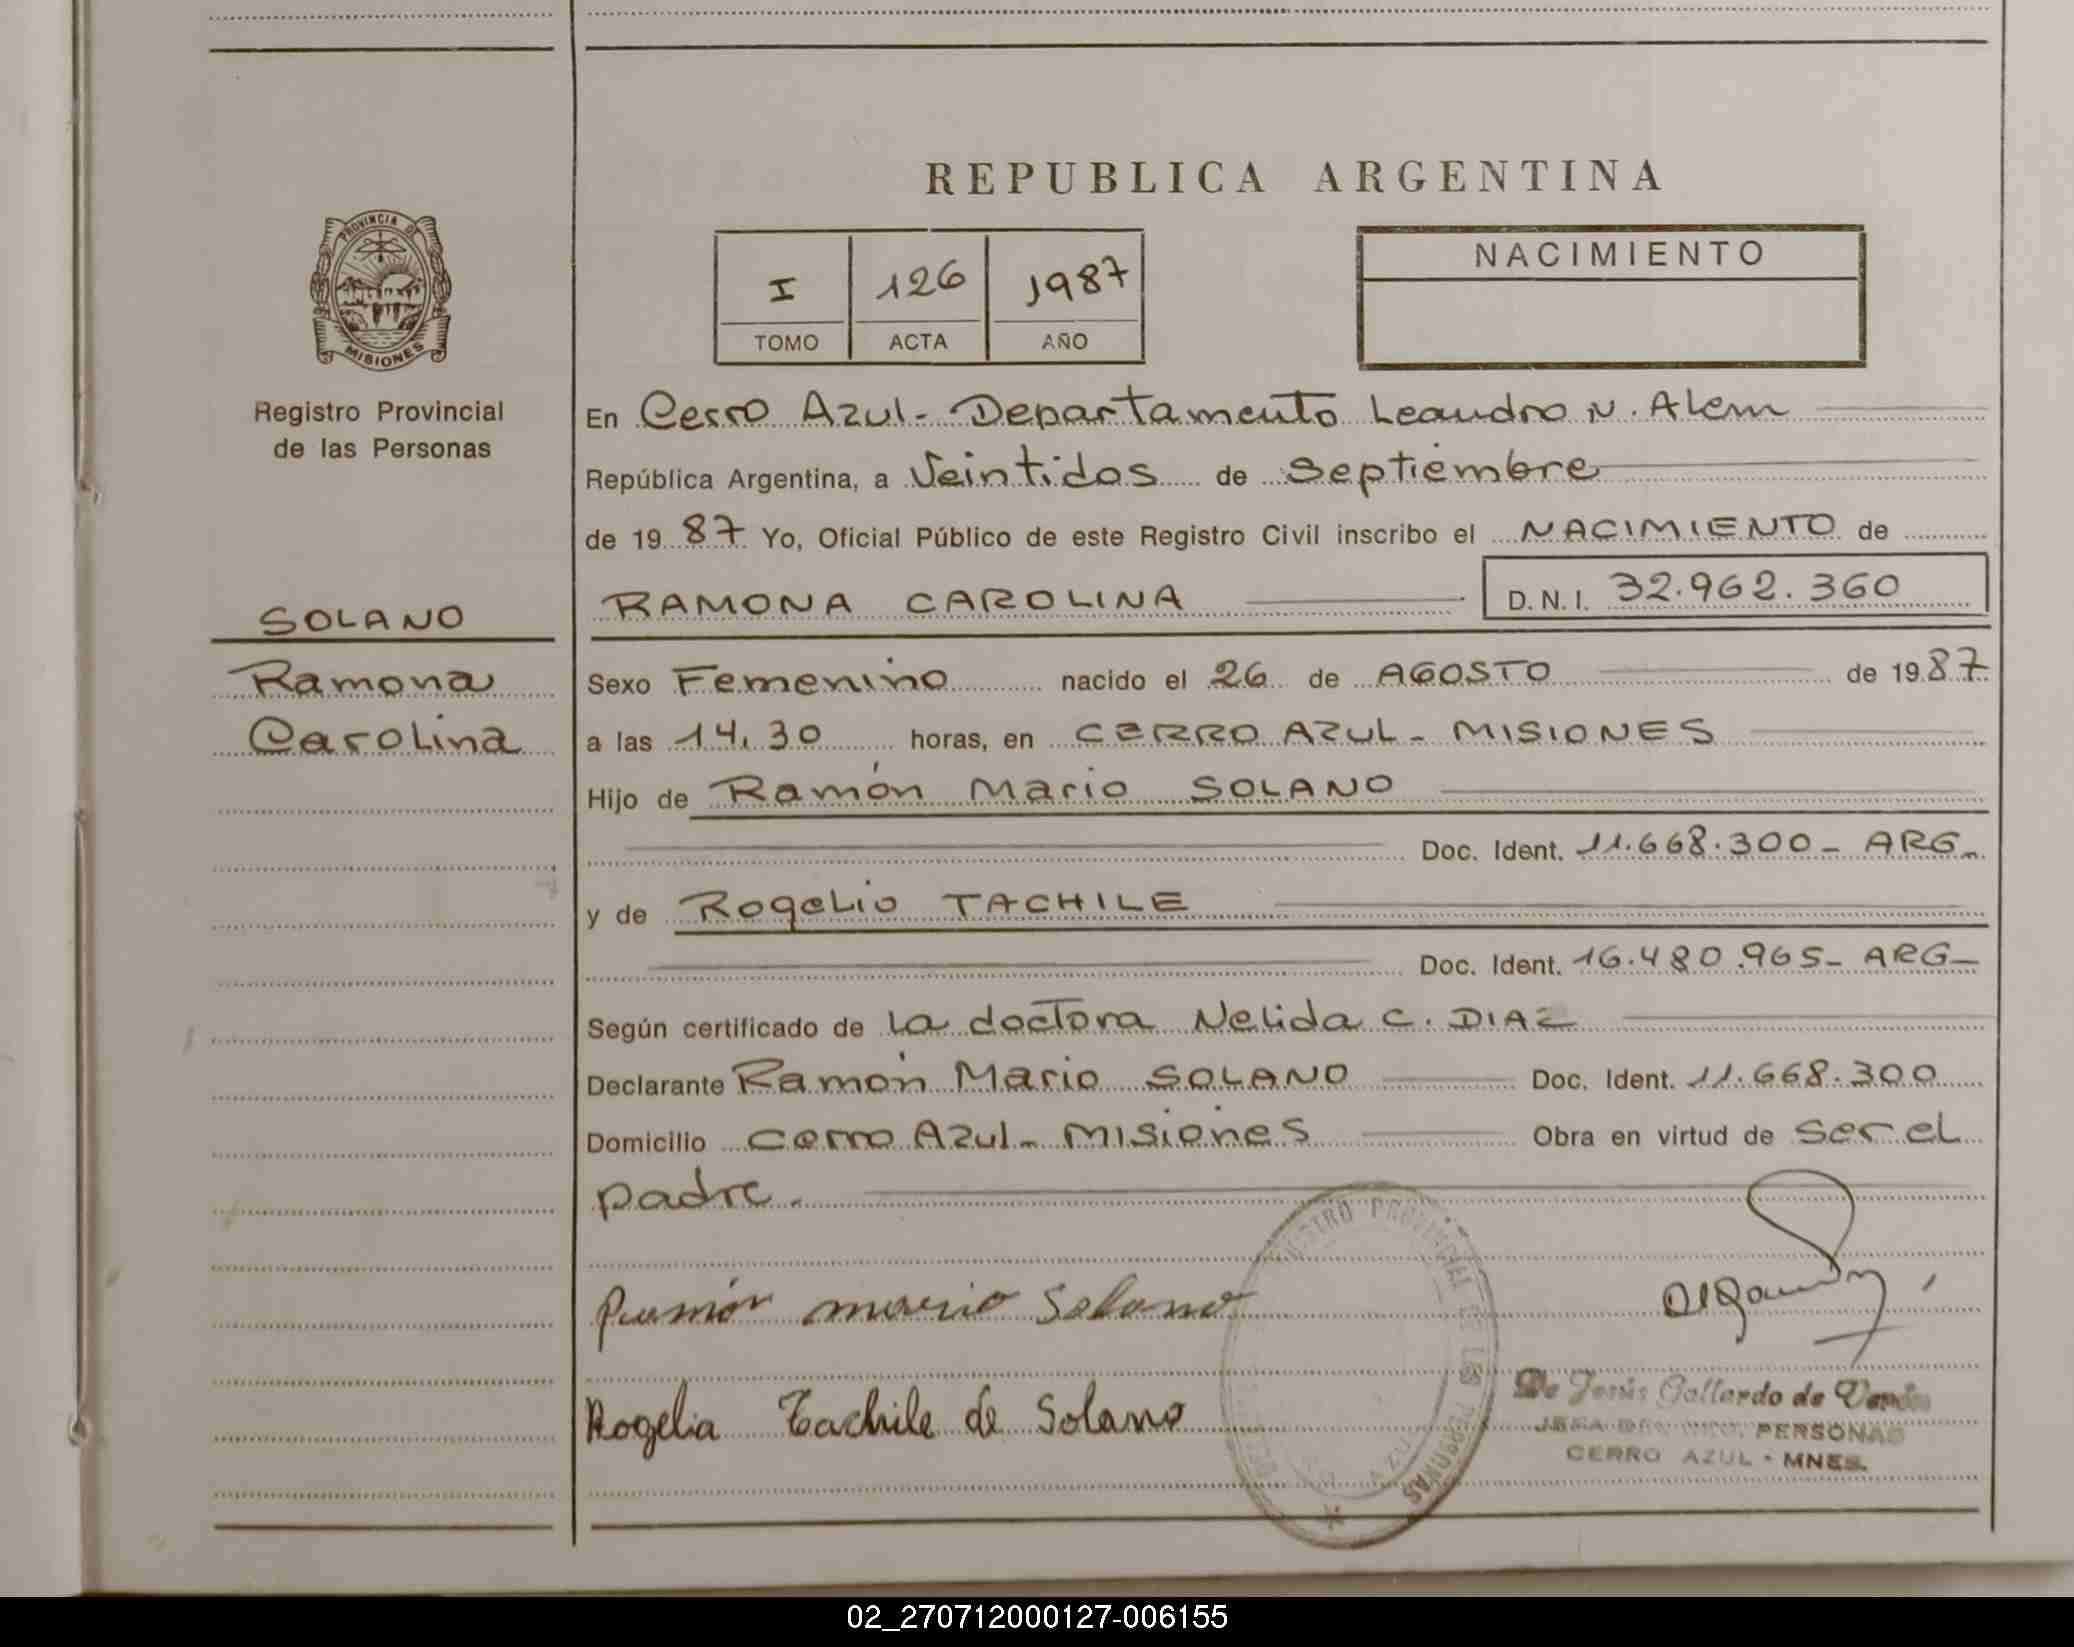 REPUBLICA ARGENTINA
PROVINCIA DE
MISIONES
Registro Provincial
de las Personas
I 126 1987
TOMO ACTA AÑO
NACIMIENTO
En Cerro Azul - Departamento Leandro N. Alem
República Argentina, a Veintidos de Septiembre
de 19 87 Yo, Oficial Público de este Registro Civil inscribo el NACIMIENTO de
SOLANO
Ramona
Carolina
RAMONA CAROLINA D.N.I. 32.962.360
Sexo Femenino nacido el 26 de AGOSTO de 19 87
a las 14,30 horas, en CERRO AZUL - MISIONES
Hijo de Ramón Mario SOLANO
Doc. Ident. 11.668.300 - ARG -
y de Rogelio TACHILE
Doc. Ident. 16.480.965 - ARG -
Según certificado de la doctora Nelida C. DIAZ
Declarante Ramón Mario SOLANO Doc. Ident. 11.668.300
Domicilio Cerro Azul - Misiones Obra en virtud de ser el
padre.
REGISTRO PROVINCIAL DE LAS PERSONAS
Ramón mario Solano
Rogelia Tachile de Solano
De Jesús Gallardo de
PERSONAS
CERRO AZUL - MNES.
02_270712000127-006155